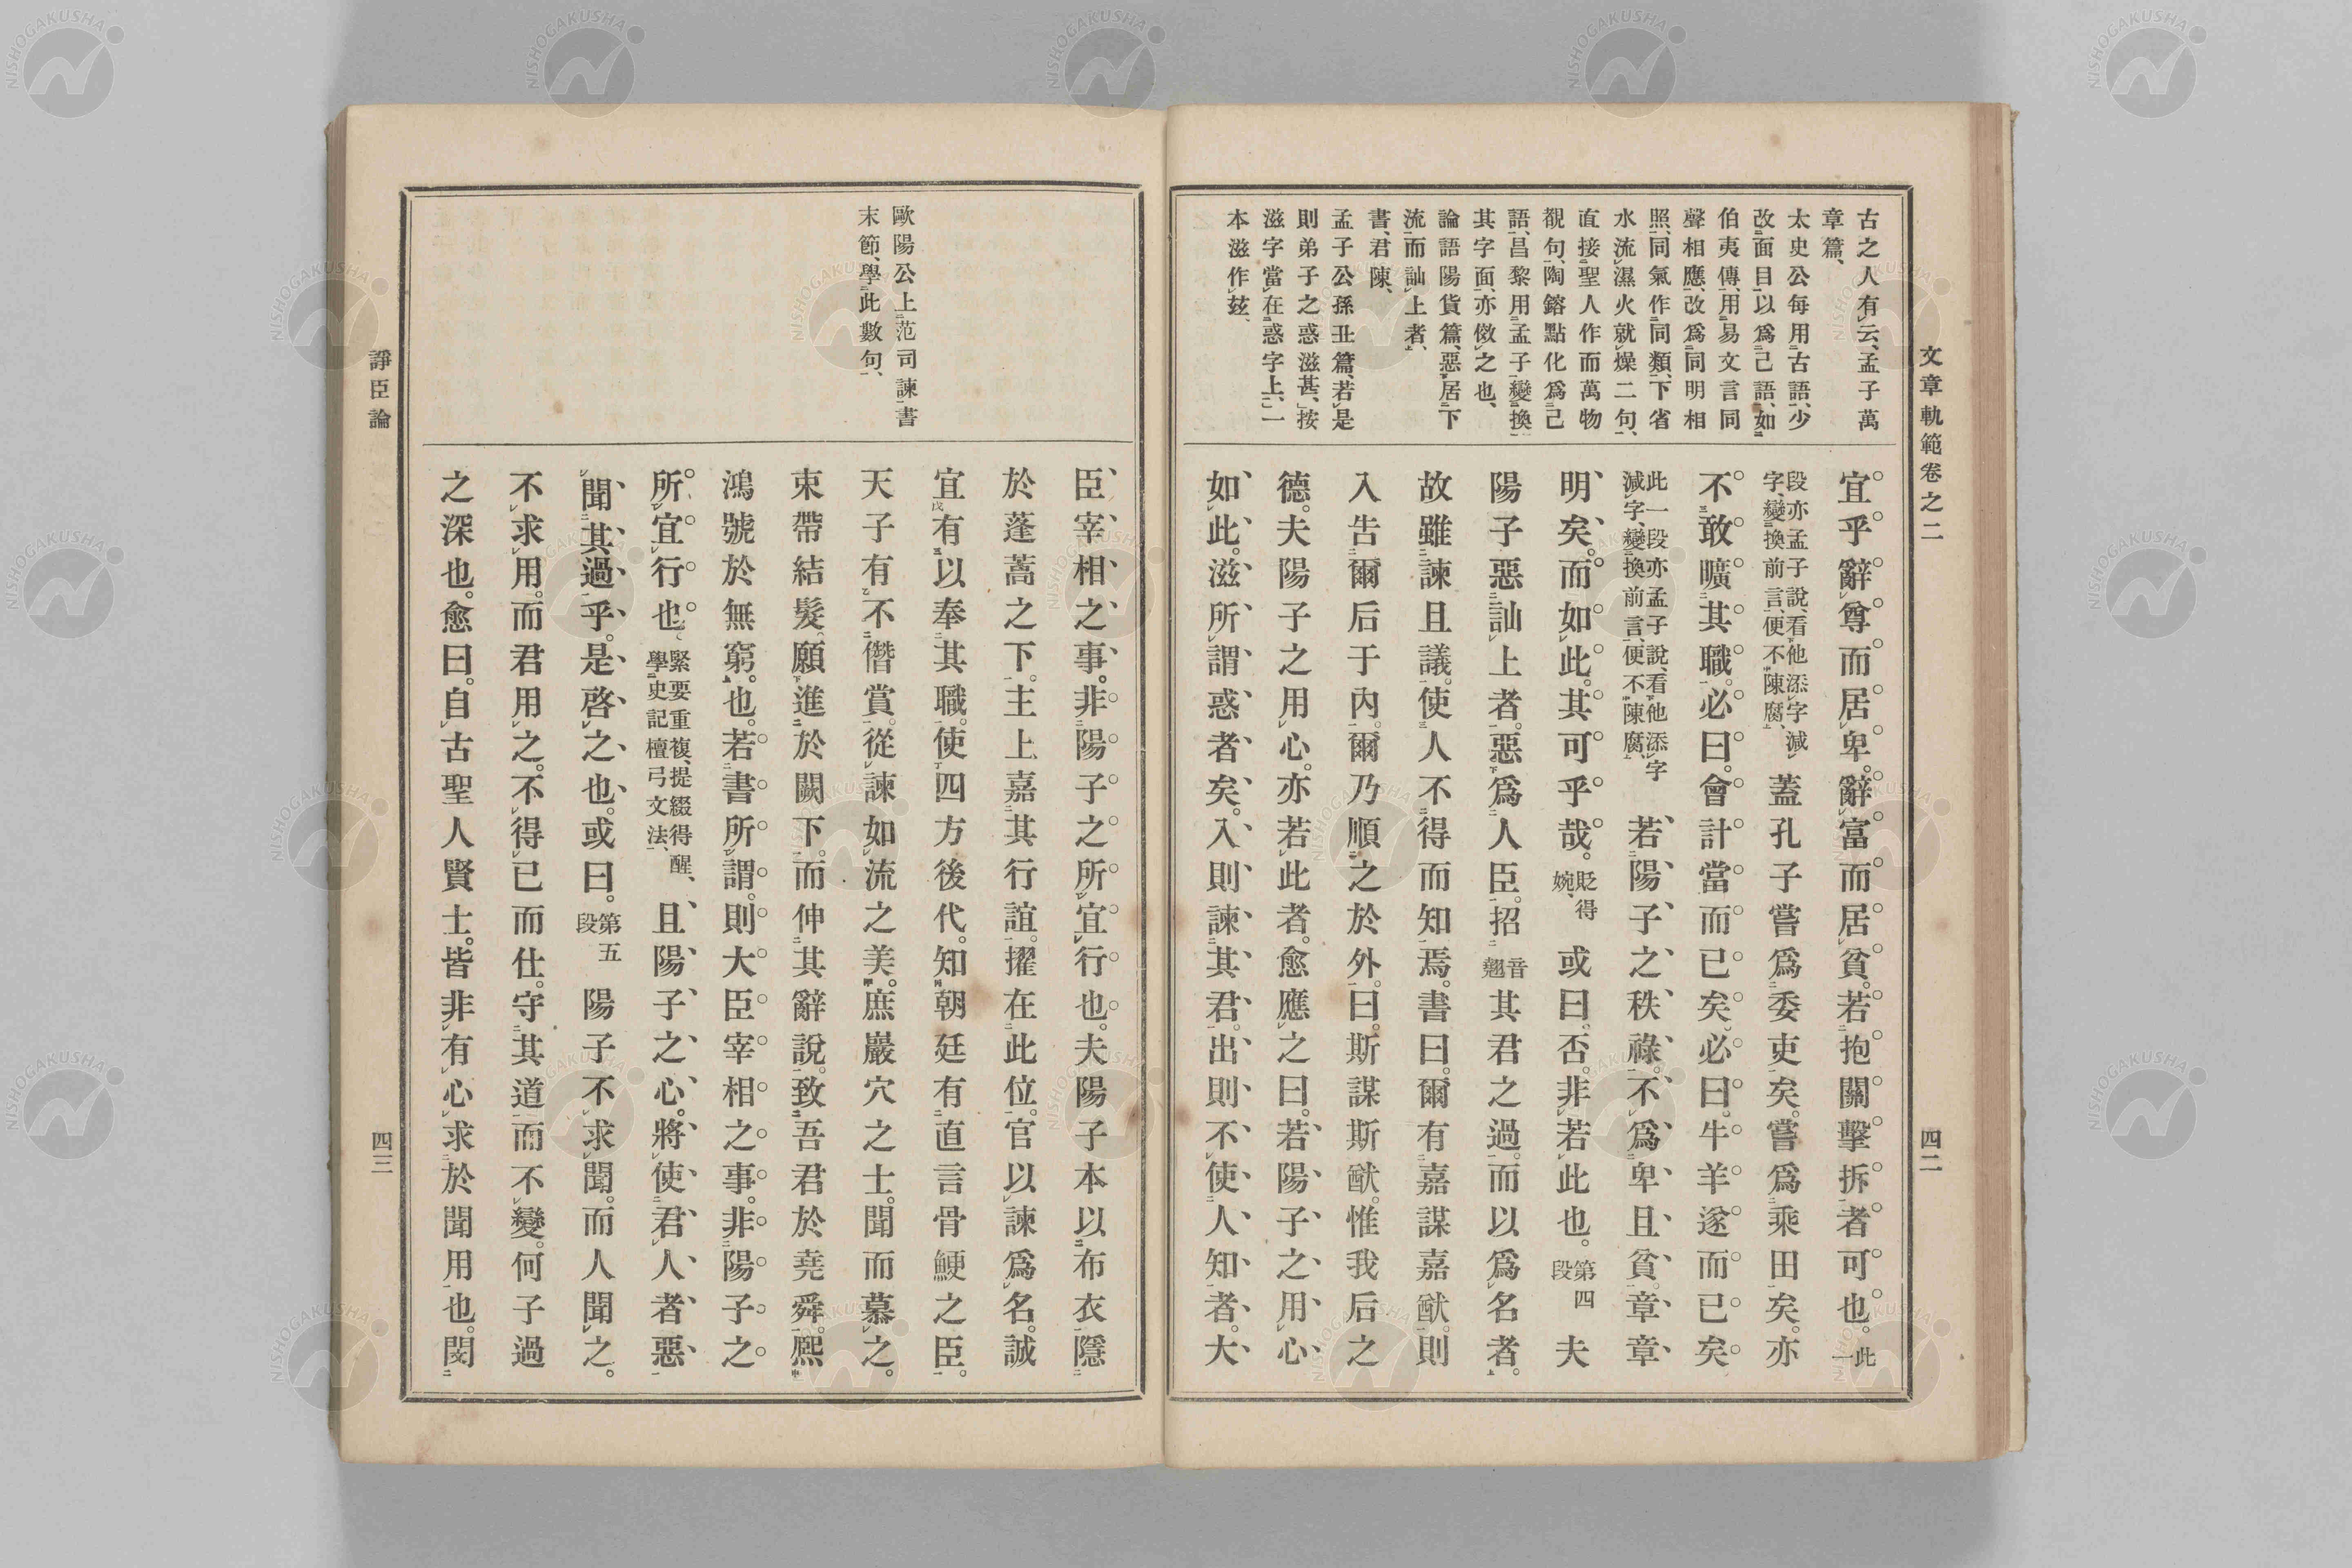 文章軌範卷之二
四二
古之人有云、孟子萬
章篇、
太史公每用古語、少
改面目以爲己語、如
伯夷傳、用易文言同
聲相應、改爲同明相
照、同氣作同類、下省
水流濕火就燥二句、
直接聖人作而萬物
覩句、陶鎔點化爲己
語、昌黎用孟子變換
其字面、亦倣之也、
論語陽貨篇、惡居下
流而訕上者、
書、君陳、
孟子公孫丑篇、若是
則弟子之惑滋甚、按
滋字當在惑字上、一
本滋作玆、
宜乎辭尊而居卑。辭富而居貧。若抱關擊拆者可也。此一
段亦孟子說、看他添字、減字、變換前言、便不陳腐、蓋孔子嘗爲委吏矣。嘗爲乘田矣。亦
不敢曠其職。必曰。會計當而已矣。必曰。牛羊遂而已矣。
此一段亦孟子說、看他添字減字、變換前言、便不陳腐、若陽子之秩祿。不爲卑且貧。章章
明矣。而如此。其可乎哉。貶得婉、或曰。否。非若此也。第四段夫
陽子惡訕上者。惡爲人臣。招音翹其君之過。而以爲名者。
故雖諫且議。使人不得而知焉。書曰。爾有嘉謀嘉猷。則
入告爾后于內。爾乃順之於外。曰。斯謀斯猷。惟我后之
德。夫陽子之用心。亦若此者。愈應之曰。若陽子之用心
如此。滋所謂惑者矣。入則諫其君。出則不使人知者。大
歐陽公上范司諫書
末節、學此數句、
臣宰相之事。非陽子之所宜行也。夫陽子本以布衣隱
於蓬蒿之下。主上嘉其行誼。擢在此位。官以諫爲名。誠
宜有以奉其職。使四方後代。知朝廷有直言骨鯁之臣。
天子有不僭賞。從諫如流之美。庶巖穴之士。聞而慕之。
束帶結髮。願進於闕下。而伸其辭說。致吾君於堯舜。熙
鴻號於無窮也。若書所謂。則大臣宰相之事。非陽子之
所宜行也緊要重複、提綴得醒、學史記檀弓文法、且陽子之心。將使君人者惡
聞其過乎。是啓之也。或曰。第五段陽子不求聞。而人聞之。
不求用。而君用之。不得已而仕。守其道而不變。何子過
之深也。愈曰。自古聖人賢士。皆非有心求於聞用也。閔
諍臣論
四三
NISHOGAKUSHA